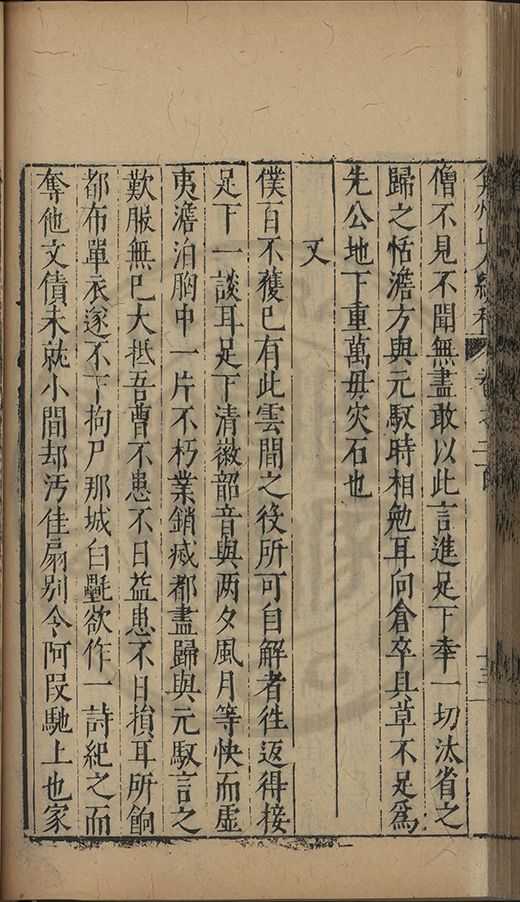 弇州山人續稿 卷之二百 十三
僧不見不聞無盡敢以此言進足下幸一切汰省之
歸之恬澹方與元馭時相勉耳向倉卒具草不足爲
先公地下重萬毋灾石也
又
僕百不獲已有此雲間之役所可自解者徃返得接
足下一談耳足下清徽韶音與两夕風月等快而虛
夷澹泊胸中一片不朽業銷烕都盡歸與元馭言之
歎服無已大抵吾曹不患不日益患不日損耳所餉
都布單衣遂不下拘尸那城白㲲欲作一詩紀之而
奪他文債未就小間却汚佳扇别令阿叚馳上也家